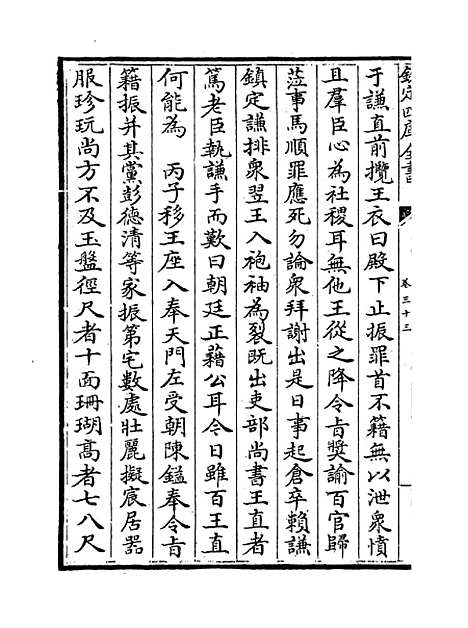 欽定四庫全書
卷三十三
于謙直前攬王衣曰殿下止振罪首不籍無以泄衆憤
且羣臣心為社稷耳無他王從之降令㫖奬諭百官歸
蒞事馬順罪應死勿論衆拜謝出是日事起倉卒賴謙
鎮定謙排衆翌王入袍袖為裂既出吏部尚書王直者
篤老臣執謙手而歎曰朝廷正藉公耳今日雖百王直
何能為　丙子移王座入奉天門左受朝陳鎰奉令㫖
籍振并其黨彭德清等家振第宅數處壯麗擬宸居器
服珍玩尚方不及玉盤徑尺者十面珊瑚髙者七八尺